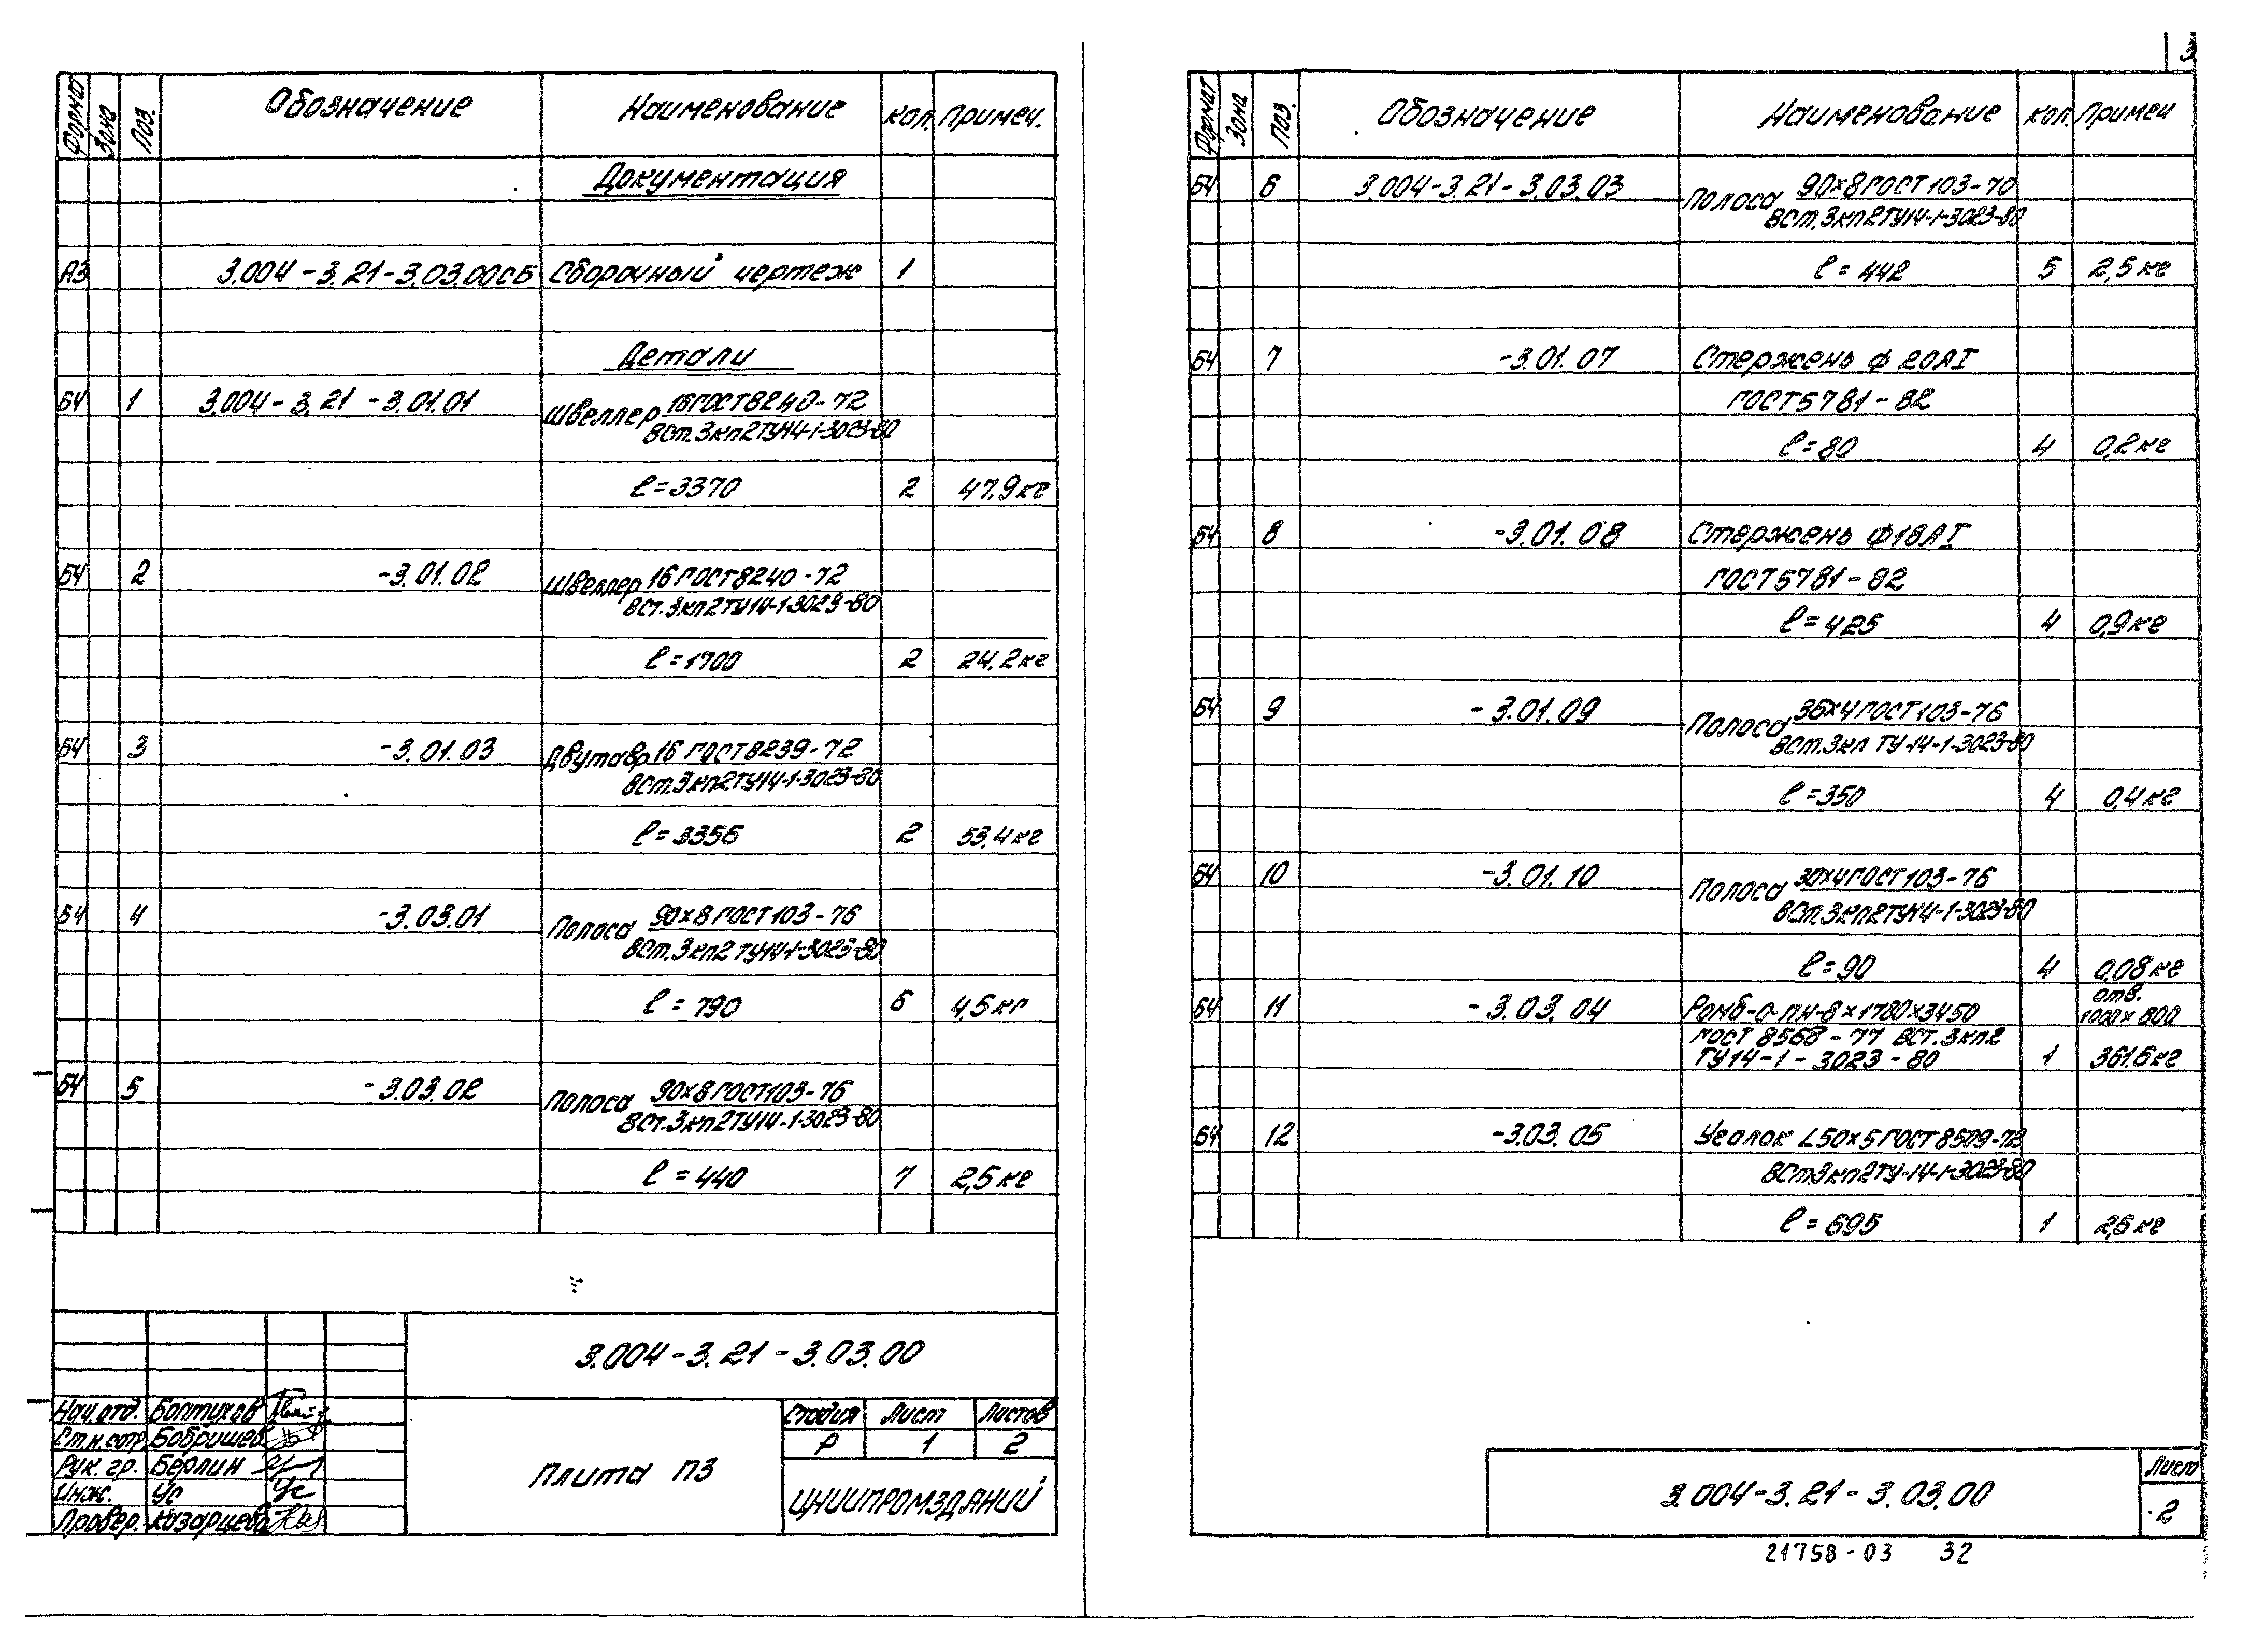 Формат Зона Поз. Обозначение Наименование Кол. Примеч.
Документация
А3 3.004-3.21-3.03.00СБ Сборочный чертеж 1
Детали
БЧ 1 3.004-3.21-3.01.01 Швеллер 16 ГОСТ 8240-72
ВСт.3кп2 ТУ14-1-3023-80
ℓ=3370 2 47,9кг
БЧ 2 -3.01.02 Швеллер 16 ГОСТ 8240-72
ВСт.3кп2 ТУ14-1-3023-80
ℓ=1700 2 24,2кг
БЧ 3 -3.01.03 Двутавр 16 ГОСТ 8239-72
ВСт.3кп2 ТУ14-1-3023-80
ℓ=3356 2 53,4кг
БЧ 4 -3.03.01 Полоса 90×8 ГОСТ 103-76
ВСт.3кп2 ТУ14-1-3023-80
ℓ=790 6 4,5кг
БЧ 5 -3.03.02 Полоса 90×8 ГОСТ 103-76
ВСт.3кп2 ТУ14-1-3023-80
ℓ=440 7 2,5кг
3.004-3.21-3.03.00
Нач.отд. Болтухов
Ст.н.сотр. Бобришев
Рук. гр. Берлин
Инж. Ус
Провер. Казарцева
Плита П3
Стадия Лист Листов
Р 1 2
ЦНИИПРОМЗДАНИЙ
3
Формат Зона Поз. Обозначение Наименование Кол. Примеч
БЧ 6 3.004-3.21-3.03.03 Полоса 90×8 ГОСТ 103-76
ВСт.3кп2 ТУ14-1-3023-80
ℓ=442 5 2,5кг
БЧ 7 -3.01.07 Стержень ф 20АI
ГОСТ 5781-82
ℓ=80 4 0,2кг
БЧ 8 -3.01.08 Стержень ф18АI
ГОСТ 5781-82
ℓ=425 4 0,9кг
БЧ 9 -3.01.09 Полоса 36×4 ГОСТ 103-76
ВСт.3кп ТУ-14-1-3023-80
ℓ=350 4 0,4кг
БЧ 10 -3.01.10 Полоса 30×4 ГОСТ 103-76
ВСт.3кп2 ТУ14-1-3023-80
ℓ=90 4 0,08кг
БЧ 11 -3.03.04 Ромб-О-ПН-8×1780×3450 отв. 1000×800
ГОСТ 8568-77 ВСт.3кп2
ТУ14-1-3023-80 1 361.6кг
БЧ 12 -3.03.05 Уголок L50×5 ГОСТ 8509-72
ВСт3кп2 ТУ-14-1-3023-80
ℓ=695 1 2,6кг
3.004-3.21-3.03.00
Лист
2
21758-03 32